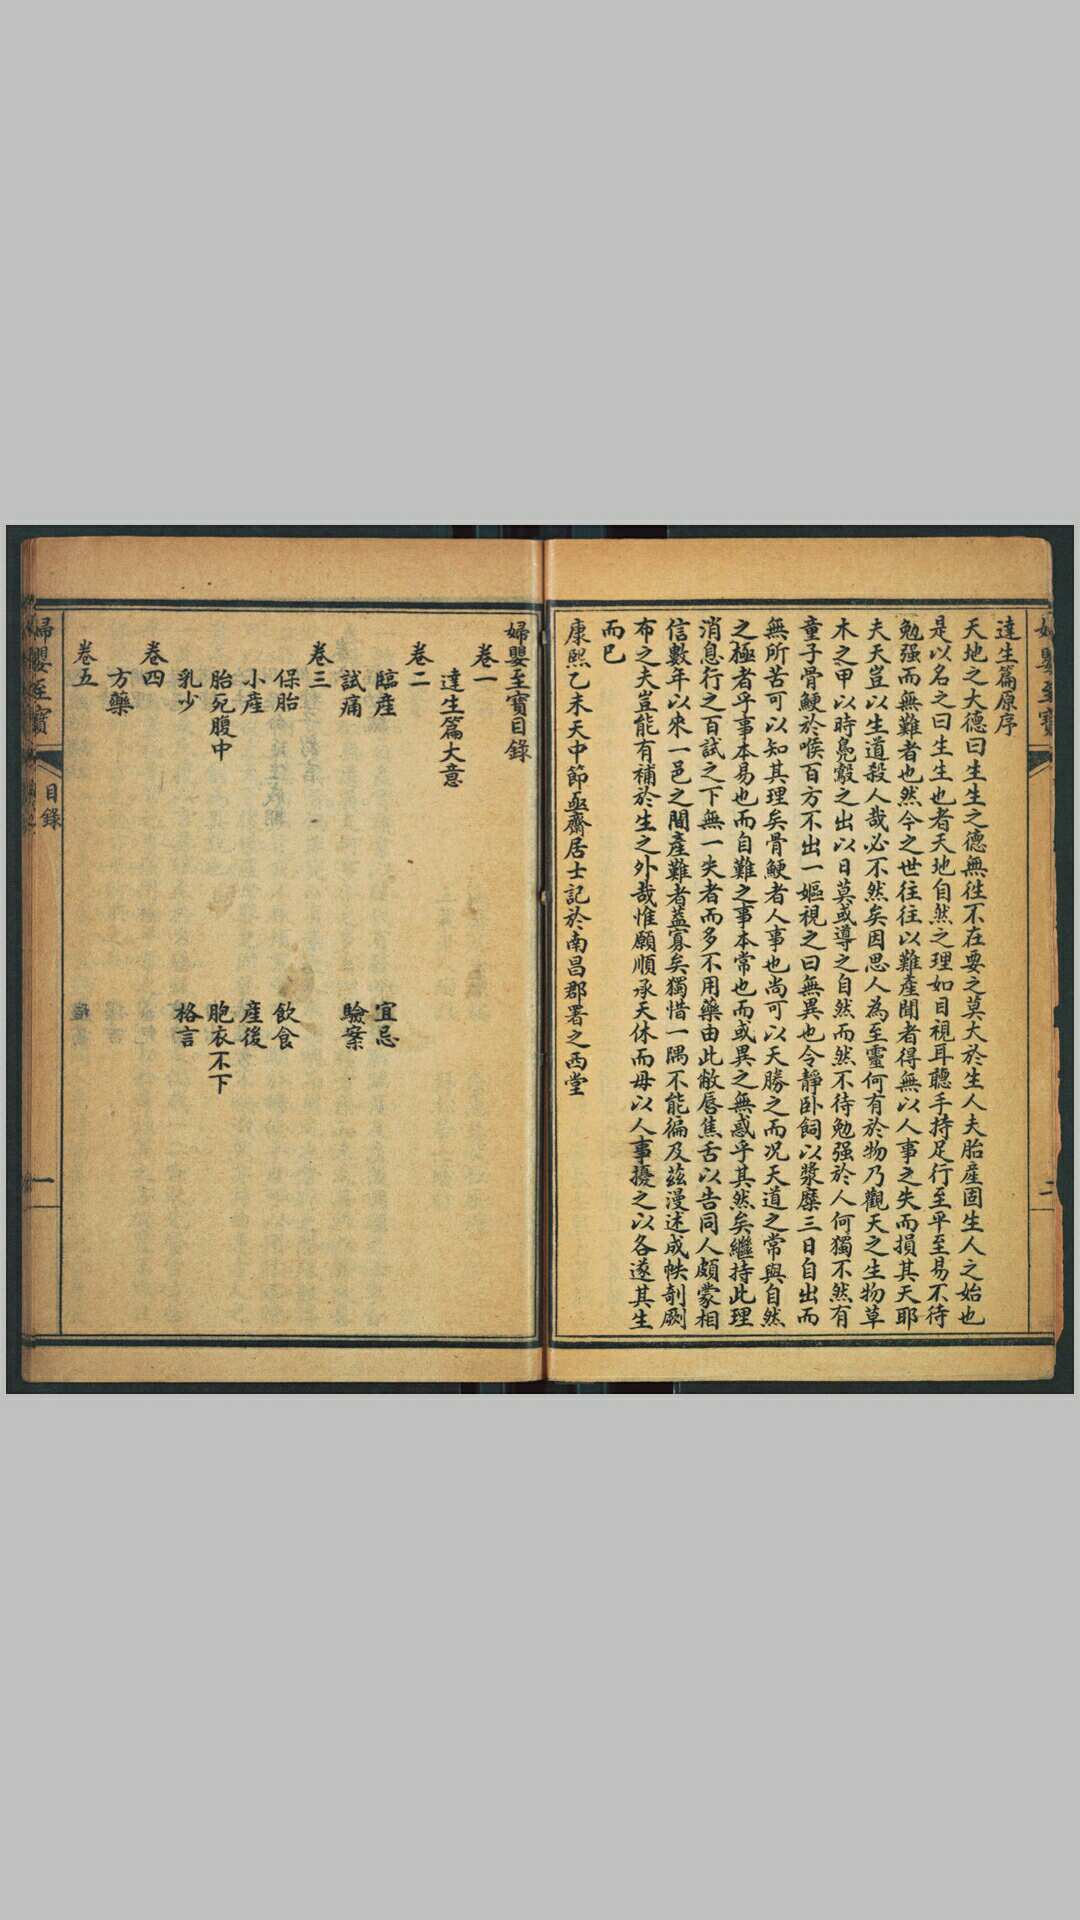 達生篇原序
天地之大德曰生生之德無徃不在要之莫大於生人夫胎產固生人之始也
是以名之曰生生也者天地自然之理如目視耳聽手持足行至平至易不待
勉强而無難者也然今之世往往以難產聞者得無以人事之失而損其天耶
夫天豈以生道殺人哉必不然矣因思人為至靈何有於物乃觀天之生物草
木之甲以時鳧鷇之出以日莫或導之自然而然不待勉强於人何獨不然有
童子骨鯁於喉百方不出一嫗視之曰無異也令靜卧飼以漿糜三日自出而
無所苦可以知其理矣骨鯁者人事也尚可以天勝之而况天道之常與自然
之極者乎事本易也而自難之事本常也而或異之無惑乎其然矣繼持此理
消息行之百試之下無一失者而多不用藥由此敝唇焦舌以告同人頗蒙相
信數年以來一邑之間產難者葢寡矣獨惜一隅不能徧及茲漫述成帙剞劂
布之夫豈能有補於生之外哉惟願順承天休而毋以人事擾之以各遂其生
而已
康熙乙未天中節亟齋居士記於南昌郡署之西堂
二
婦嬰至寶目錄
卷一
達生篇大意
卷二
臨產 宜忌
試痛 驗案
卷三
保胎 飲食
小產 產後
胎死腹中 胞衣不下
乳少 格言
卷四
方藥
卷五
婦嬰至寶 目錄 一